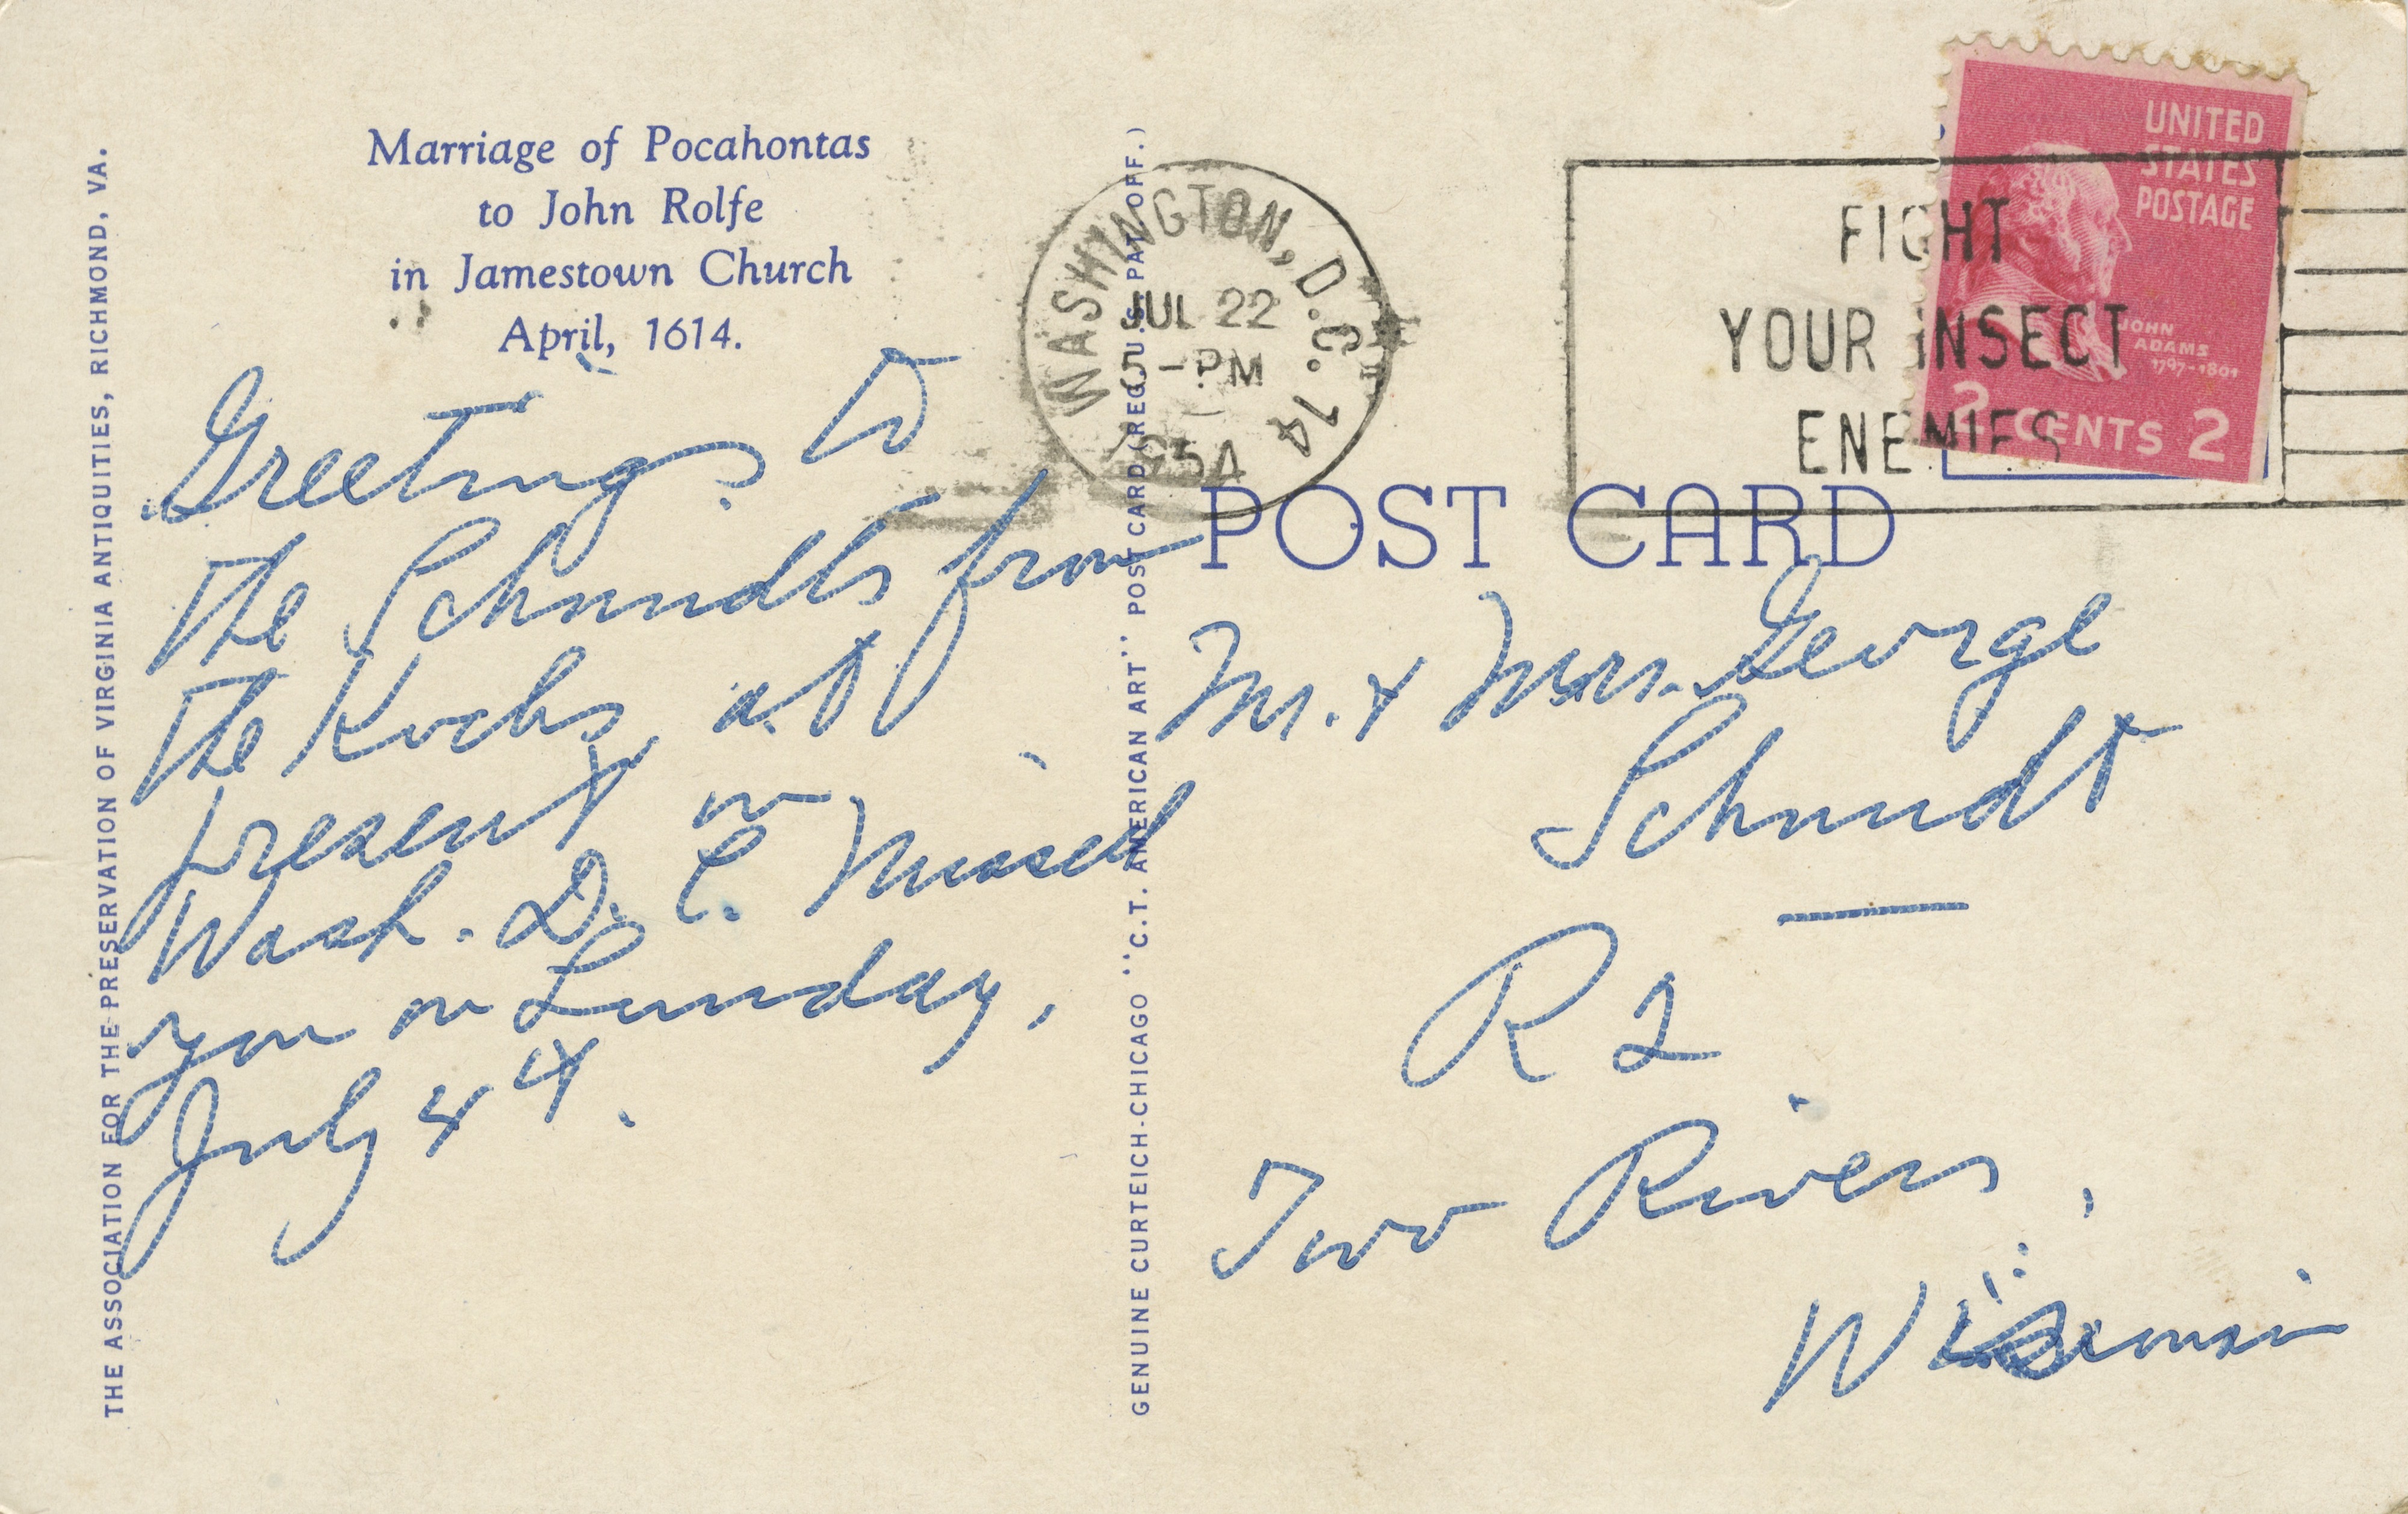 THE ASSOCIATION FOR THE PRESERVATION OF VIRGINIA ANTIQUITIES, RICHMOND, VA.
Marriage of Pocahontas
to John Rolfe
in Jamestown Church
April, 1614.
Greetings to
the Schmidts from
the Kochs, at
present in
Wash. D. C. Missed
you on Sunday,
July 4th.
GENUINE CURTEICH-CHICAGO "C.T. AMERICAN ART" POST CARD (REG. U.S. PAT. OFF.)
WASHINGTON, D.C. 14
JUL 22
-PM
1954
FIGHT
YOUR INSECT
ENEMIES
UNITED
STATES
POSTAGE
JOHN
ADAMS
1797-1801
2 CENTS 2
POST CARD
Mr. & Mrs. George
Schmidt
R 2
Two Rivers,
Wisconsin